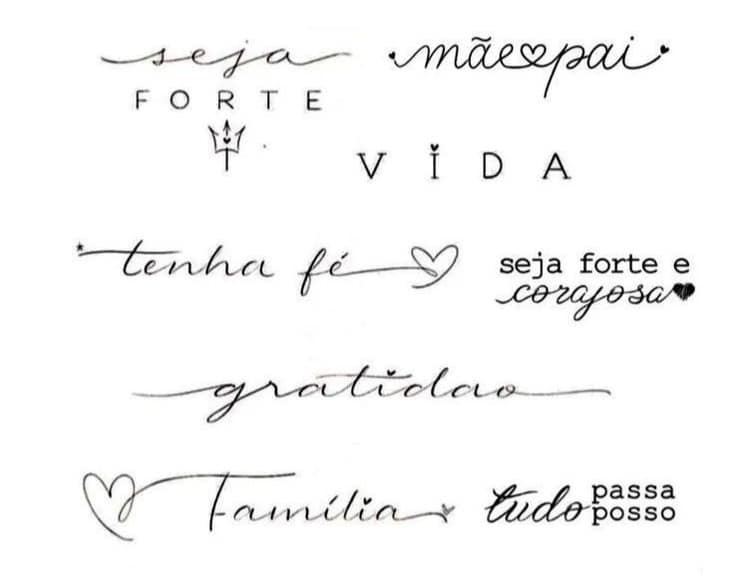 seja
FORTE
mãe pai
VIDA
tenha fé
seja forte e
corajosa
gratidao
Família
tudo passa
posso